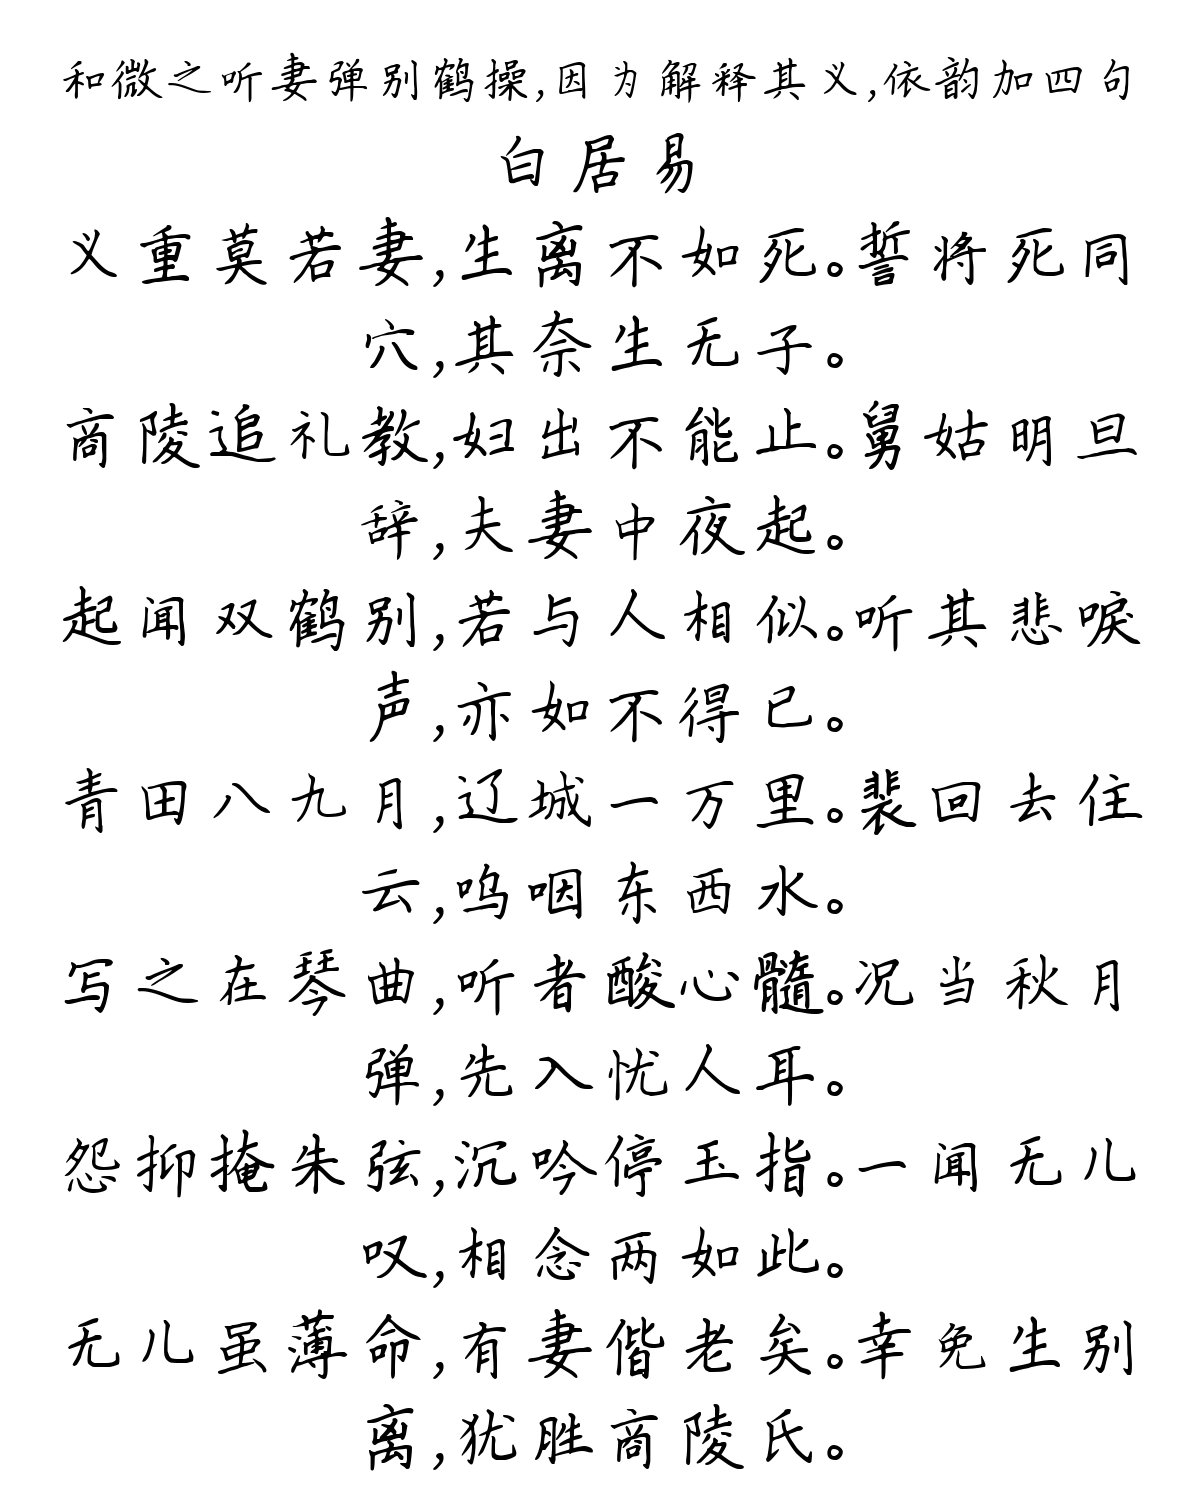 和微之听妻弹别鹤操,因为解释其义,依韵加四句
白居易
义重莫若妻,生离不如死。誓将死同
穴,其奈生无子。
商陵追礼教,妇出不能止。舅姑明旦
辞,夫妻中夜起。
起闻双鹤别,若与人相似。听其悲唳
声,亦如不得已。
青田八九月,辽城一万里。裴回去住
云,呜咽东西水。
写之在琴曲,听者酸心髓。况当秋月
弹,先入忧人耳。
怨抑掩朱弦,沉吟停玉指。一闻无儿
叹,相念两如此。
无儿虽薄命,有妻偕老矣。幸免生别
离,犹胜商陵氏。